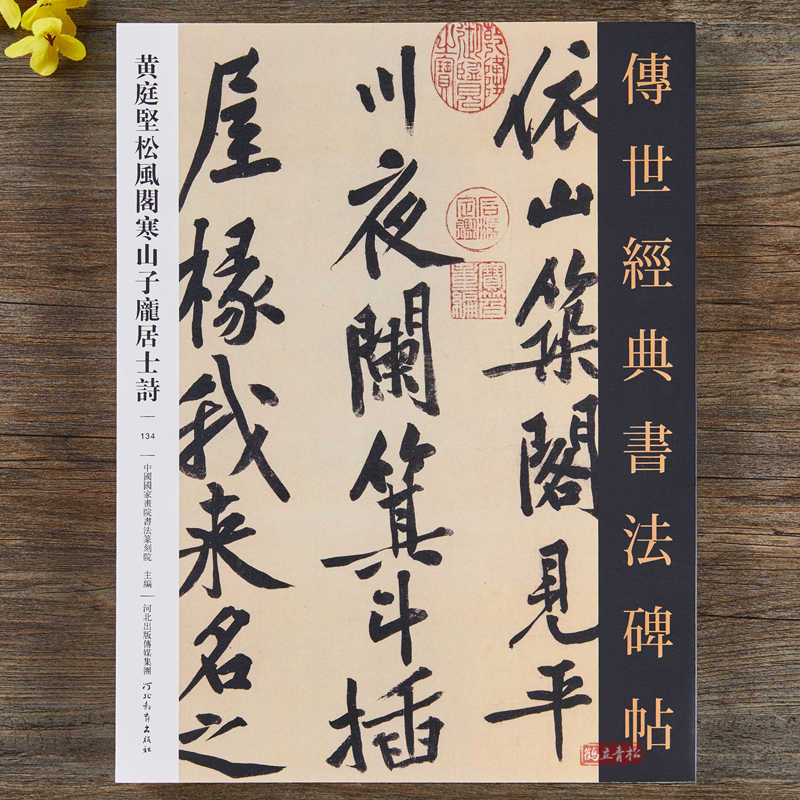 傳世經典書法碑帖
依山築閣見平
川夜闌箕斗插
屋椽我来名之
黄庭堅松風閣寒山子龐居士詩
134
中國國家畫院書法篆刻院 主編
河北出版傳媒集團
河北教育出版社
鶴立青松